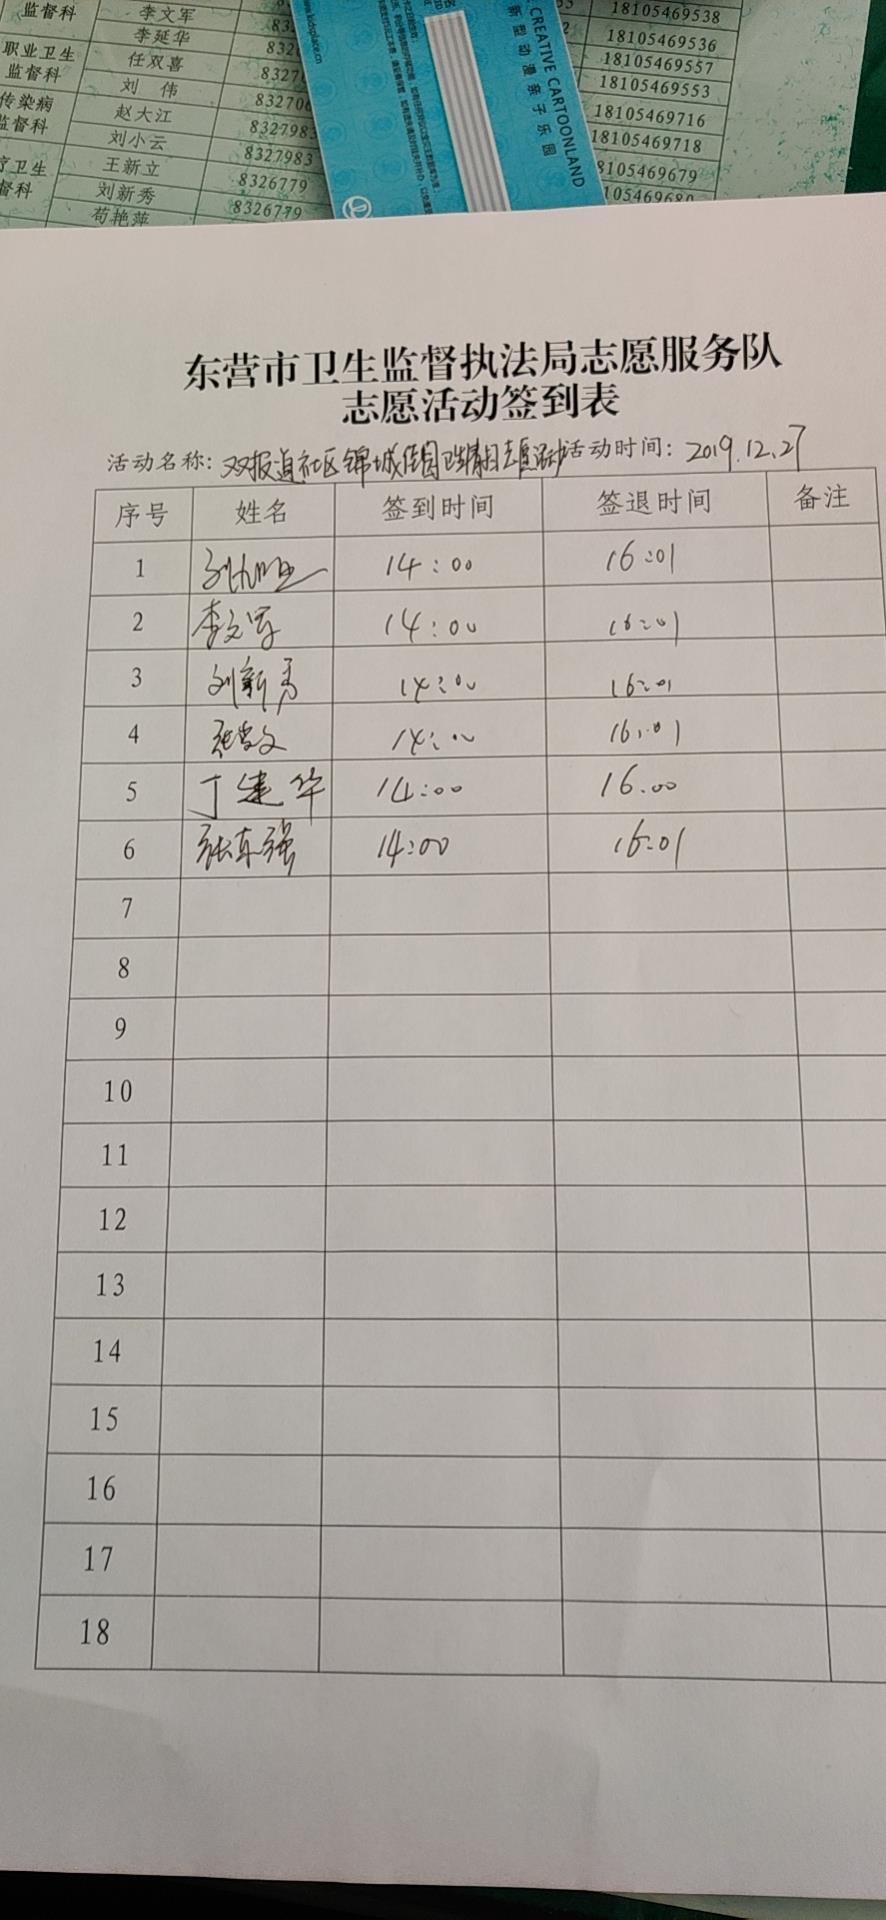 监督科 李文军 18105469538
李延华 18105469536
职业卫生监督科 任双喜 18105469557
刘 伟 18105469553
传染病 监督科 赵大江 832706 18105469716
刘小云 8327983 18105469718
疗卫生 督科 王新立 8327983 8105469679
刘新秀 8326779
苟艳萍 8326779
CREATIVE CARTOONLAND
新型动漫亲子乐园
www.kidsplace.cn
东营市卫生监督执法局志愿服务队
志愿活动签到表
活动名称：双报道社区锦城佳园卫生清扫志愿活动 活动时间：2019.12.27
序号 姓名 签到时间 签退时间 备注
1 14:00 16:01
2 李文军 14:00 16:01
3 刘新秀 14:00 16:01
4 14:00 16:01
5 丁建华 14:00 16:00
6 张东强 14:00 16:01
7
8
9
10
11
12
13
14
15
16
17
18